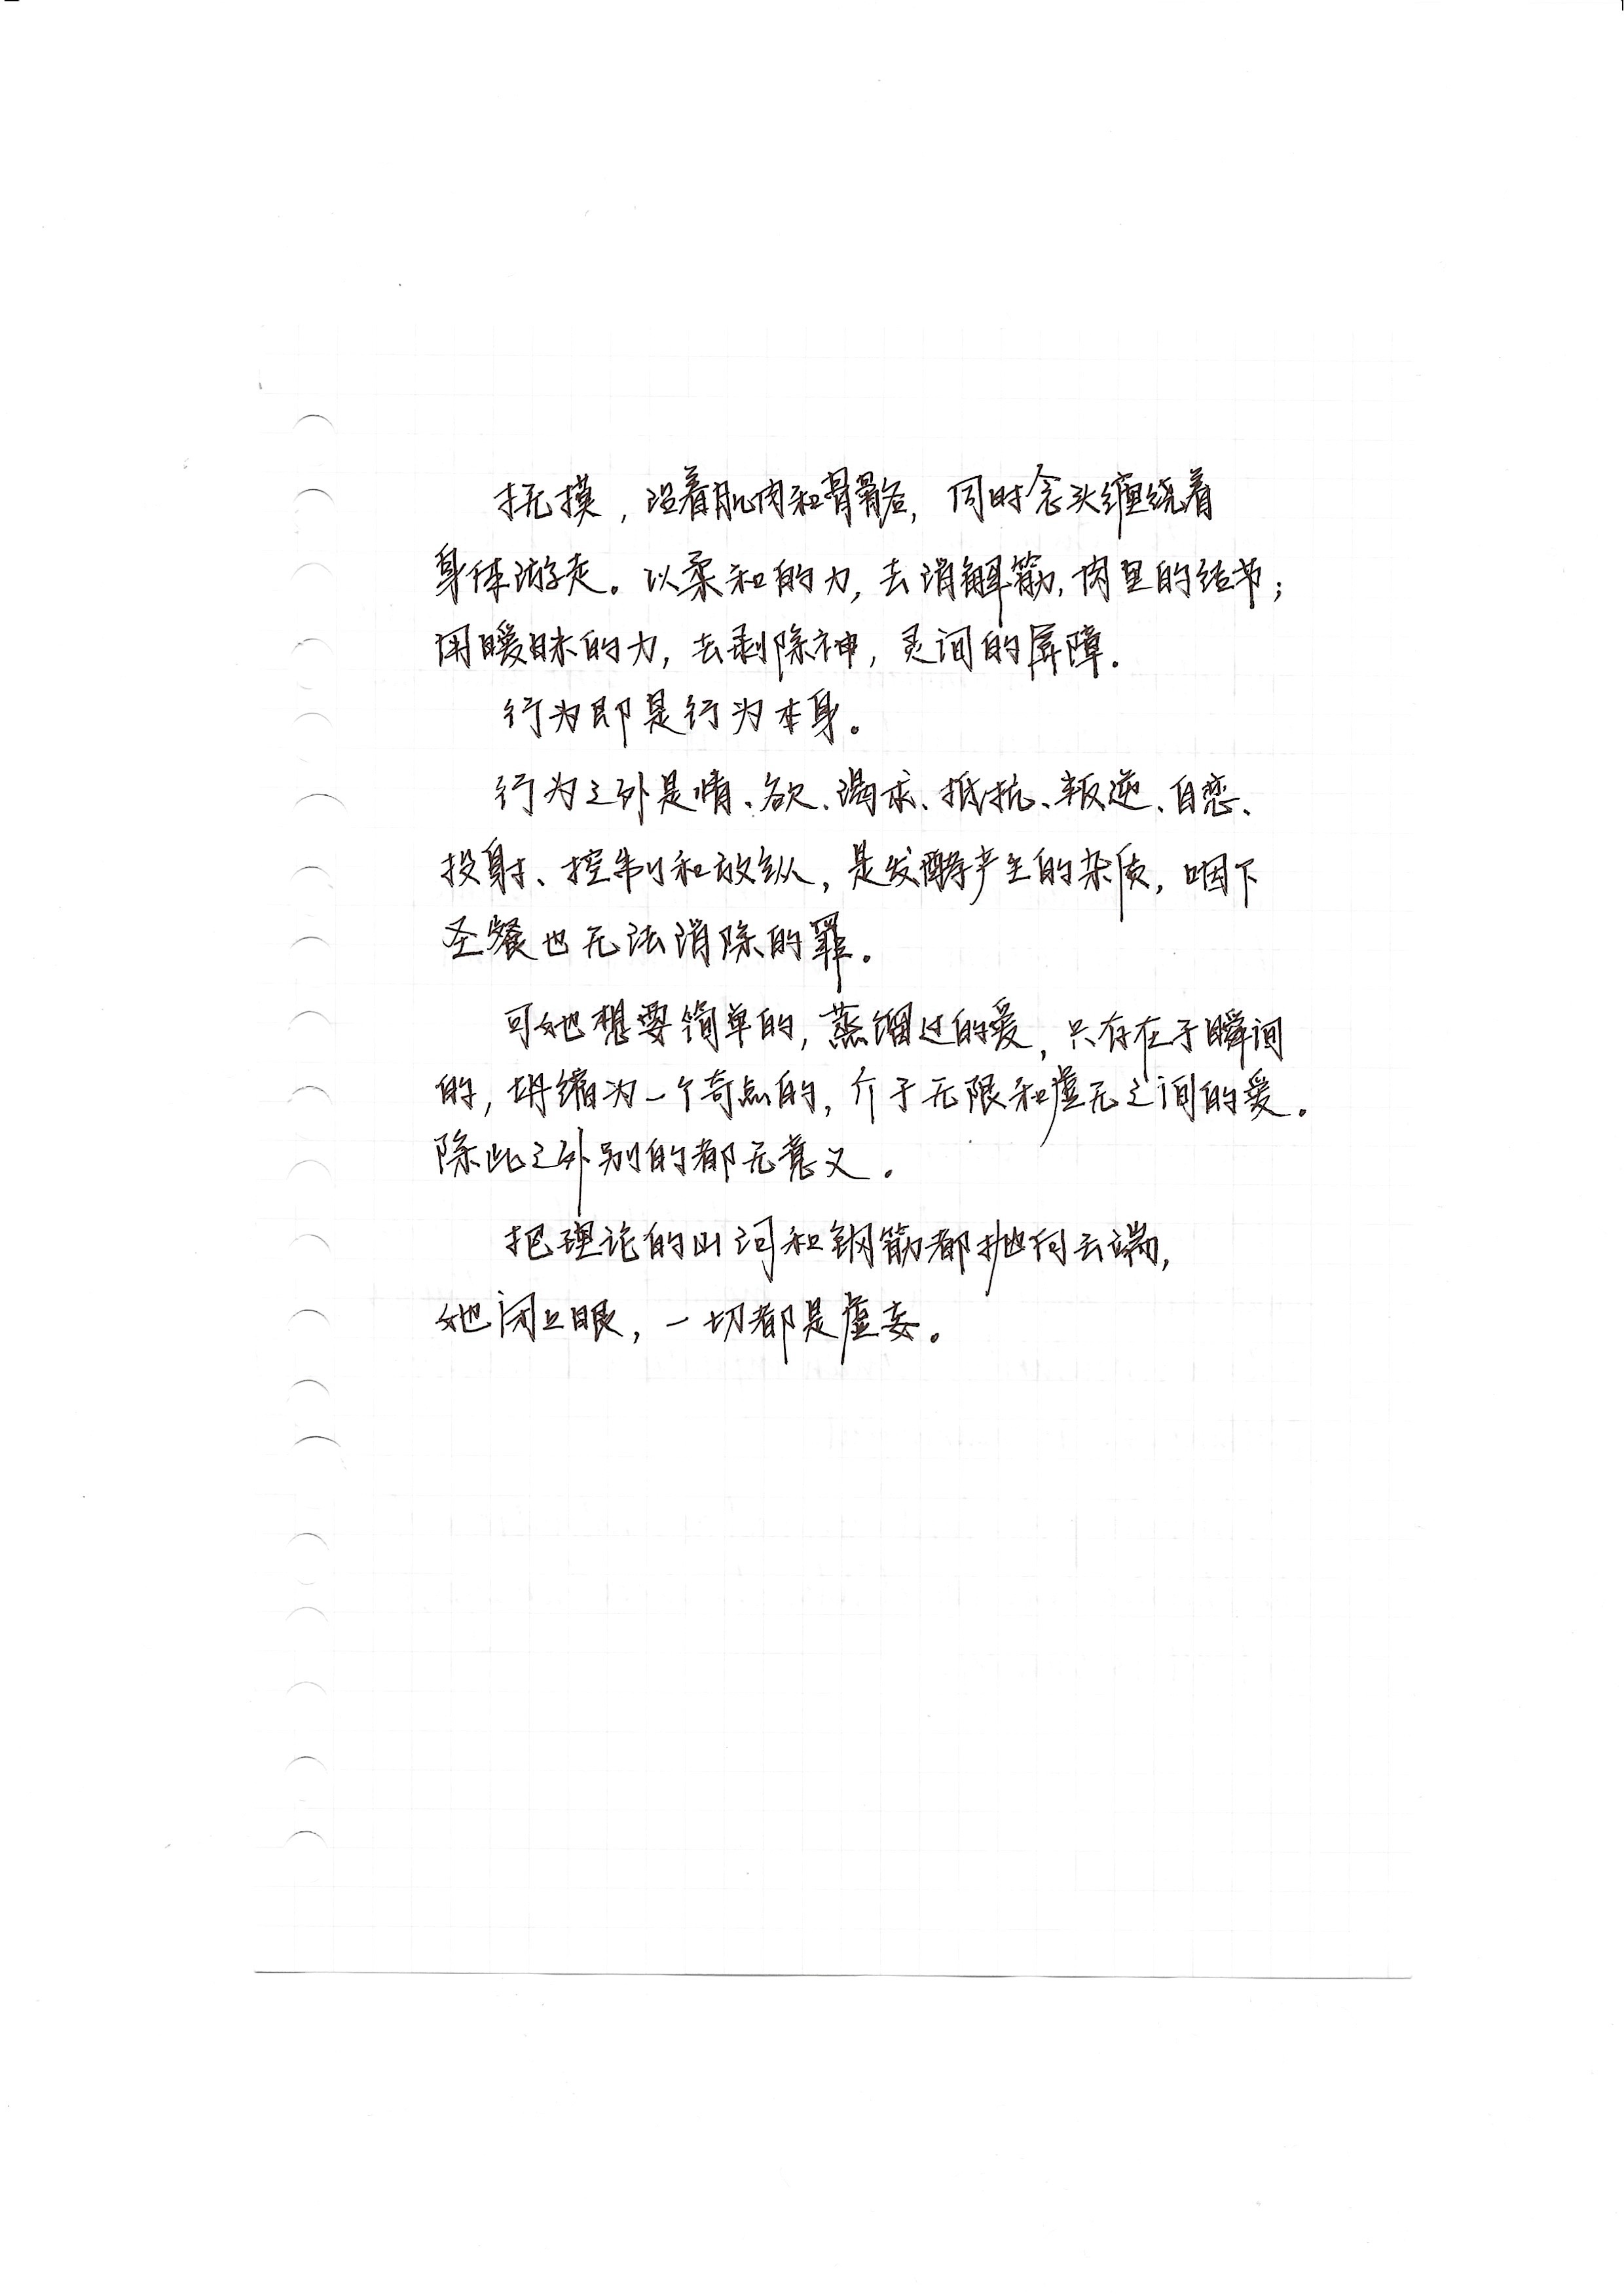 抚摸，沿着肌肉和骨骼，同时念头缠绕着
身体游走。以柔和的力，去消解筋，肉里的结节；
用暧昧的力，去剥除神，灵间的屏障。
行为即是行为本身。
行为之外是情、欲、渴求、抵抗、叛逆、自恋、
投射、控制和放纵，是发酵产生的杂质，咽下
圣餐也无法消除的罪。
可她想要简单的，蒸馏过的爱，只存在于瞬间
的，坍缩为一个奇点的，介于无限和虚无之间的爱。
除此之外别的都无意义。
把理论的山河和钢筋都抛向云端，
她闭上眼，一切都是虚妄。